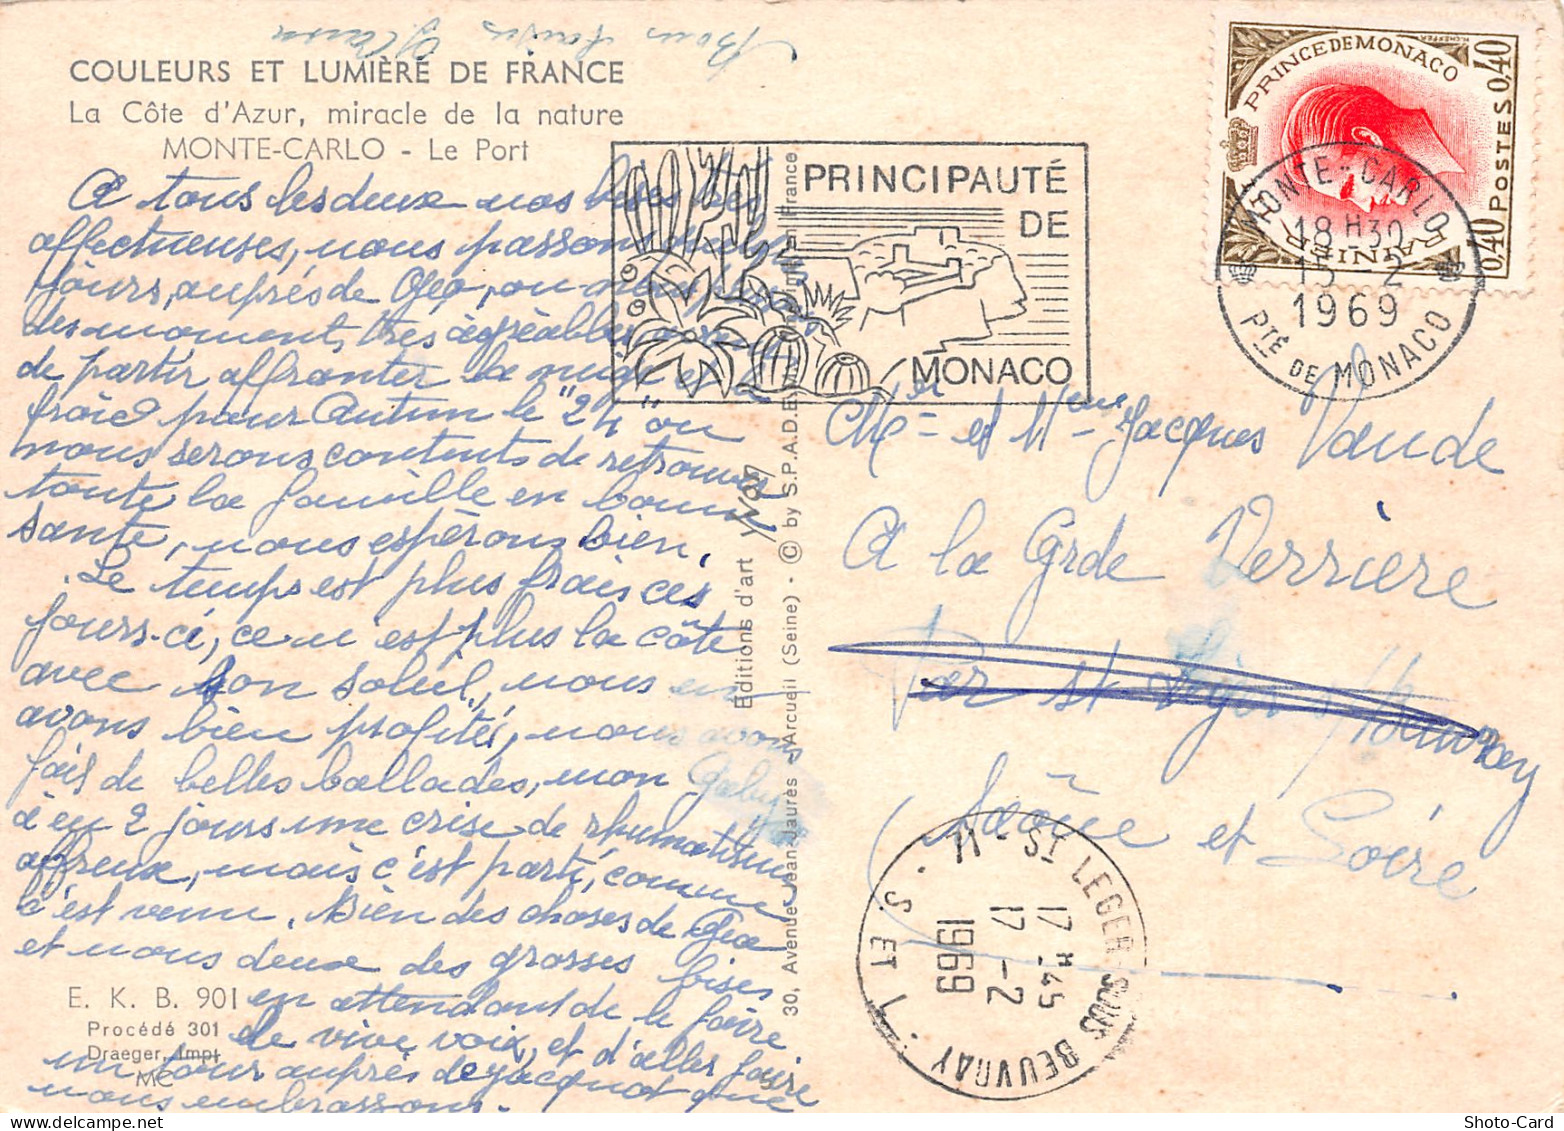 Bons baisers
COULEURS ET LUMIÈRE DE FRANCE
La Côte d'Azur, miracle de la nature
MONTE-CARLO - Le Port
A tous les deux nos bises très
affectueuses, nous passons
jours, auprès de Géo, ou
des moment, très agréables
de partir affronter la neige et le
froid pour Autun le "24" ou
nous serons contents de retrouver
toute la famille en bonne
sante, nous espérons bien.
Le temps est plus frais ces
jours-ci, ce n'est plus la côte
avec son soleil, nous en
avons bien profités, nous avons
fais de belles ballades, mon Gaby
à eu 2 jours une crise de rhumatisme
affreux, mais c'est parti, comme
c'est venu. Bien des choses de Géo
et nous deux des grosses bises
en attendant de le faire
de vive voix, et d'aller faire
un tour auprès de Jacquot que
nous embrassons.
E. K. B. 901
Procédé 301
Draeger, Impr
MC
Editions d'art YVON
30, Avenue Jean-Jaurès - Arcueil (Seine) - © by S.P.A.D.E.M.
PRINCIPAUTÉ
DE
MONACO
PRINCE DE MONACO
RAINIER
0,40 POSTES 0,40
MONTE-CARLO
18 H 30
15 - 2
1969
PTÉ DE MONACO
Mr et Mme Jacques Vaude
A la Grde Verrière
Par St Léger s/Beuvray
Saône et Loire
ST LEGER SOUS BEUVRAY
17 H 45
17 - 2
1969
S. ET L.
Shoto-Card